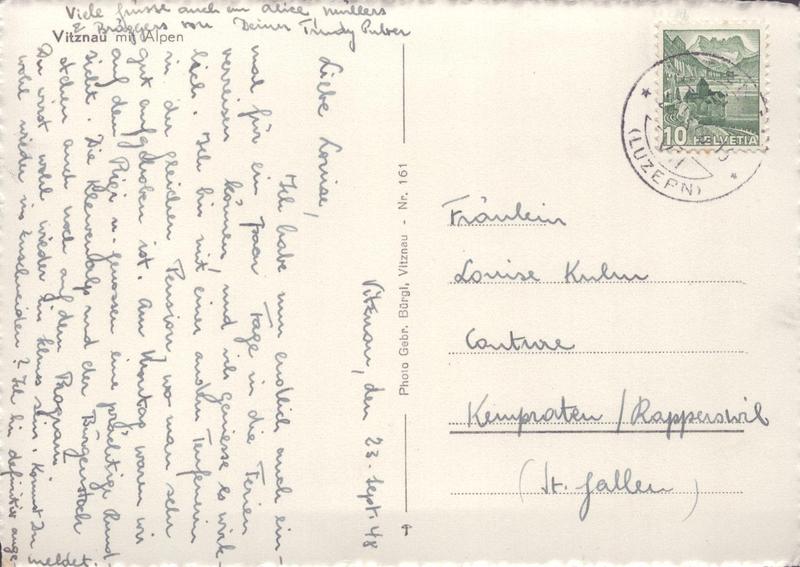 Viele Grüsse auch an Alice Müllers
& Brüggers von Deiner Trudy Pulver
Vitznau mit Alpen
Vitznau, den 23. Sept. 48
Liebe Louise,
Ich habe nun endlich auch ein-
mal für ein paar Tage in die Ferien
verreisen können, und ich geniesse es wirk-
lich. Ich bin mit einer andern
in der gleichen Pension, wo man sehr
gut aufgehoben ist. Am Montag waren wir
auf dem Rigi u. genossen eine prächtige Rund-
sicht. Die und der Bürgenstock
stehen auch noch auf dem Programm.
Du wirst wohl wieder im sein. Kommst Du
wohl wieder ins Zuschneiden? Ich bin definitiv ange-
meldet.
Photo Gebr. Bürgi, Vitznau - Nr. 161
10 HELVETIA
(LUZERN)
Fräulein
Louise Kuhn
Couture
Kempraten / Rapperswil
(St. Gallen)